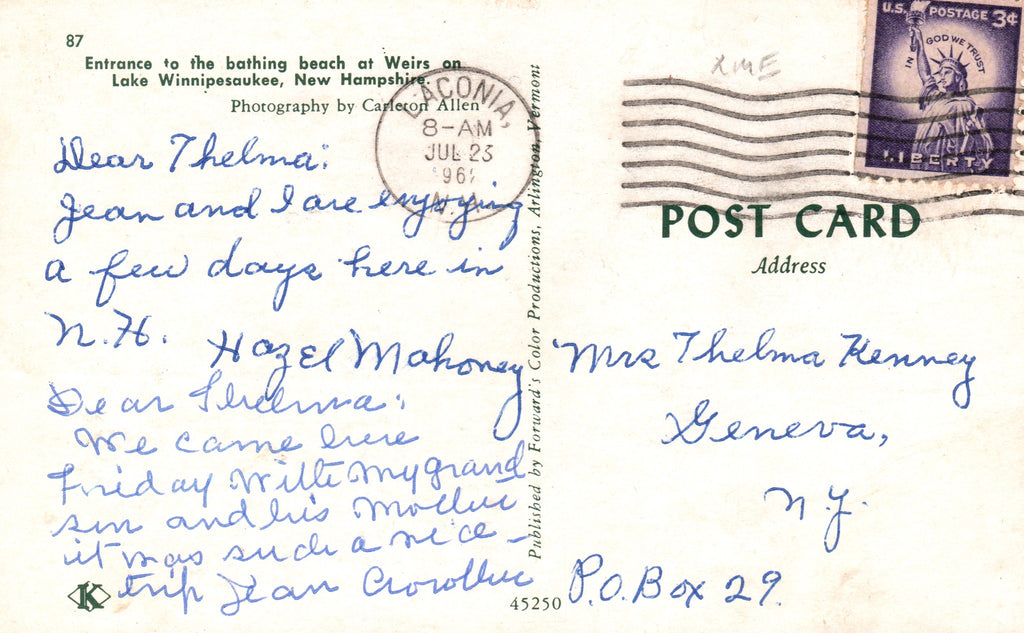 87
Entrance to the bathing beach at Weirs on
Lake Winnipesaukee, New Hampshire.
Photography by Carleton Allen
LACONIA,
8-AM
JUL 23
196
N.H.
Dear Thelma:
Jean and I are enjoying
a few days here in
N.H.
Hazel Mahoney
Dear Thelma:
We came here
Friday with my grand
son and his Mother
it was such a nice
trip Jean
K
Published by Forward's Color Productions, Arlington, Vermont
45250
U.S. POSTAGE 3¢
IN GOD WE TRUST
LIBERTY
POST CARD
Address
Mrs Thelma Kenney
Geneva,
N.Y.
P.O. Box 29.